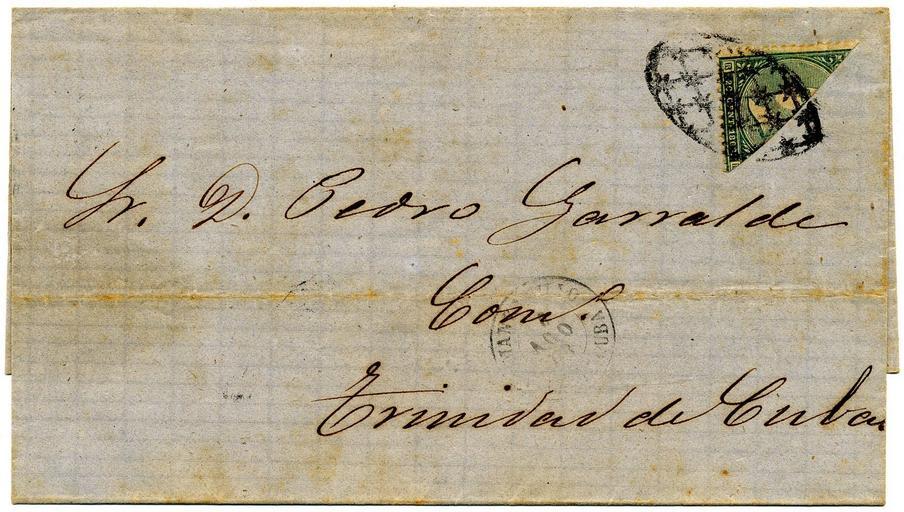 Sr. D. Pedro Garralde
Com.º
Trinidad de Cuba
CUBA